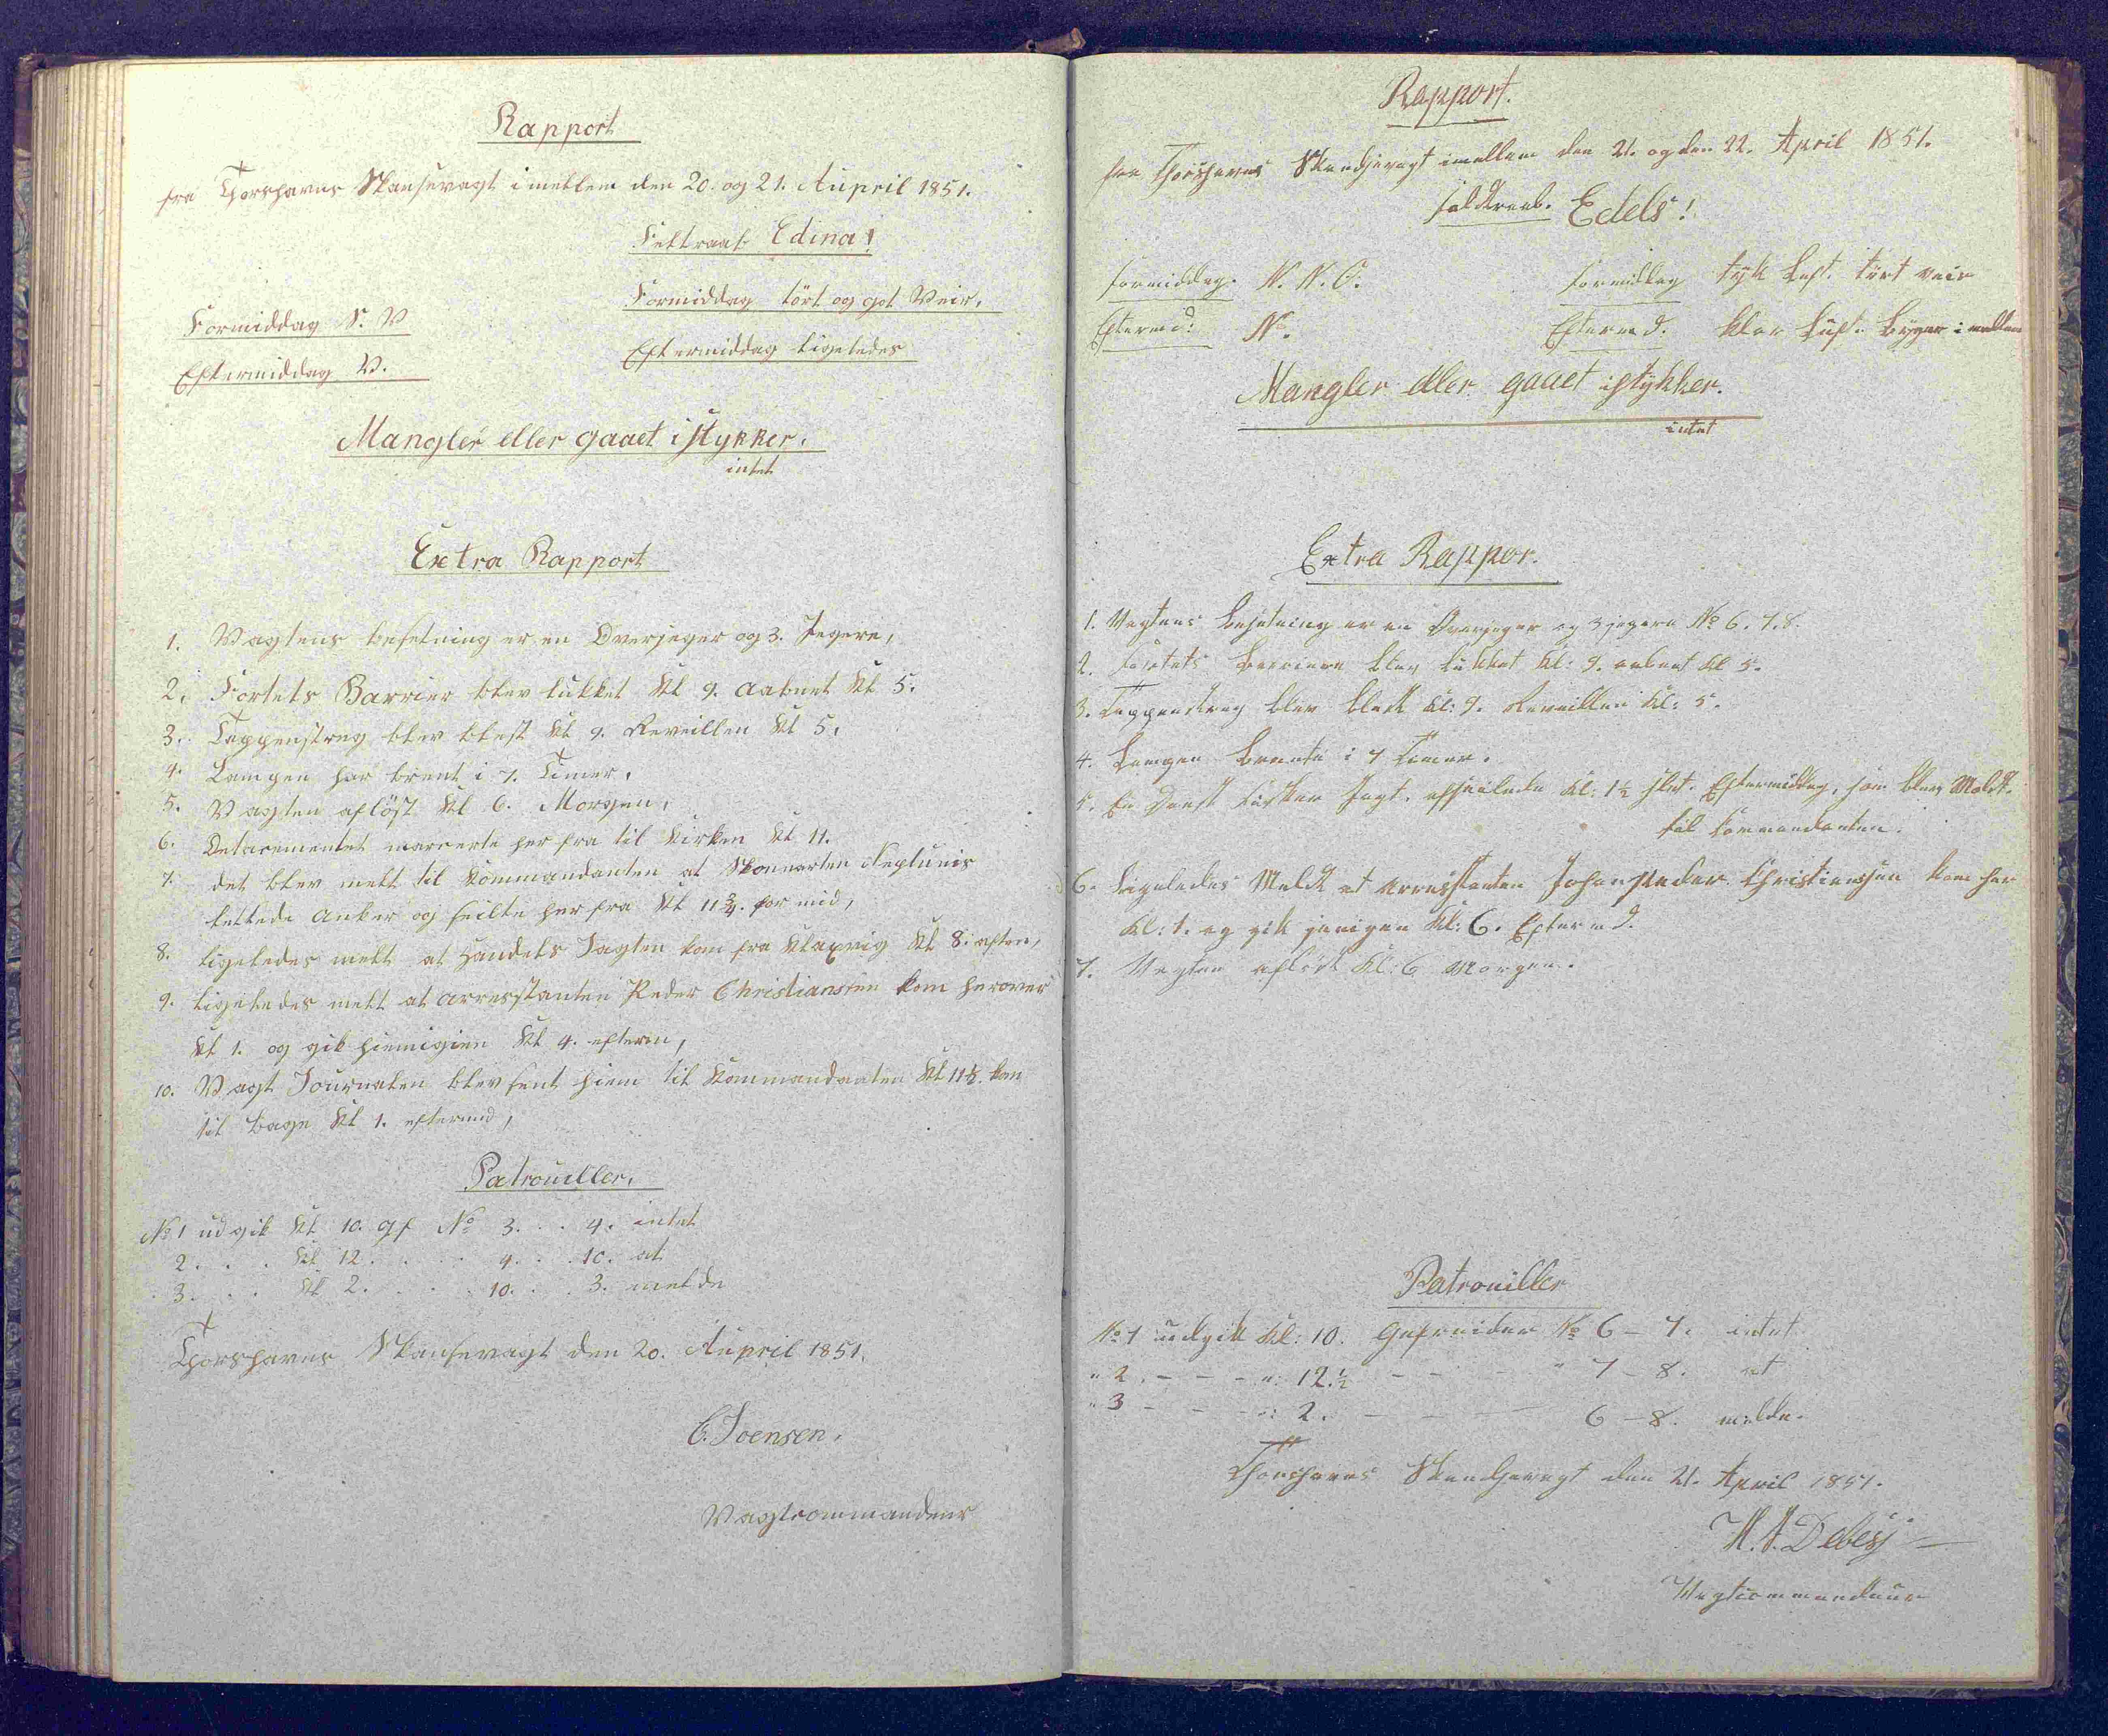 Rapport
fra Thorshavns Skansevagt imellem den 20. og 21. Aupril 1851.
Feltraab Edina!
Formiddag S. V
Formiddag tört og got Veir.
Eftermiddag V.
Eftermiddag ligeledes
Mangler eller gaaet i stykker.
intet
Extra Rapport
1. Vagtens besetning er en Overjeger og 3. Jegere,
2. Fortets Barrier blev lukket Kl 9. aabnet Kl 5.
3. Tappenstreg blev blest Kl 9. Reveillen Kl 5.
4. Lampen har brent i 7. Timer.
5. Vagten aflöst Kl 6. Morgen,
6. Detacementet marcerte her fra til Kirken Kl 11.
7. det blev melt til Kommandanten at Skonnerten Neptunis
lettede Anker og seilte her fra Kl 11 3/4. for mid,
8. ligeledes melt at Handels Jagten kom fra Klaxvig Kl 8. aften,
9. ligeledes melt at arresstanten Peder Christiansen kom herover
Kl 1. og gik hiemigien Kl 4. efterm,
10. Vagt Journalen blev sent hiem til Kommandanten Kl 11½. kom
til bage Kl 1. eftermid,
Patrouiller.
No 1 udgik Kl 10. gf No 3. . . 4. intet
2. . . . Kl 12. . . . . 4. . . 10. at
3. . . . Kl 2. . . . . 10. . . 3. melde
Thorshavns Skansevagt den 20. Aupril 1851.
C. Joensen.
Vagtcommandeur
Rapport.
fra Thorshavns Skandsevagt imellem den 21. og den 22. April 1851.
Feldtraab. Edels!
Formiddag. N. N. O.
Formiddag tyk Luft. tört veir
Efterm d: N.
Efterm d. klar Luft. Byger imellem
Mangler eller gaaet istykker.
intet
Extra Rappor.
1. Vagtens Besetning er en Overjeger og 3 jegere No 6. 7. 8.
2. Fortets Barriere blev lukket Kl: 9. aabnet Kl 5.
3. Tappenstreg blev blest Kl: 9. Reveillen Kl: 5.
4. Lampen brente i 7 Timer.
5. En Dansk Fisker Jagt. afseilede Kl: 1½ slet. Eftermiddag, som blev Meldt.
til Kommandanten.
6. Ligeledes Meldt at arresstanten Johan Peder Christianssen kom her
Kl: 1. og gik jemigen Kl: 6. Efterm d.
7. Vagten aflöst Kl: 6 Morgen.
Patrouiller
No 1 udgik Kl: 10. Gefreider No 6 - 7. intet
" 2. - - - ": 12.½ - - - " 7 - 8. at
" 3 - - - ": 2. - - - 6 - 8. melde.
Thorshavns Skandsevagt den 21. April 1851.
H. J. Debess
Vagtcommandeur